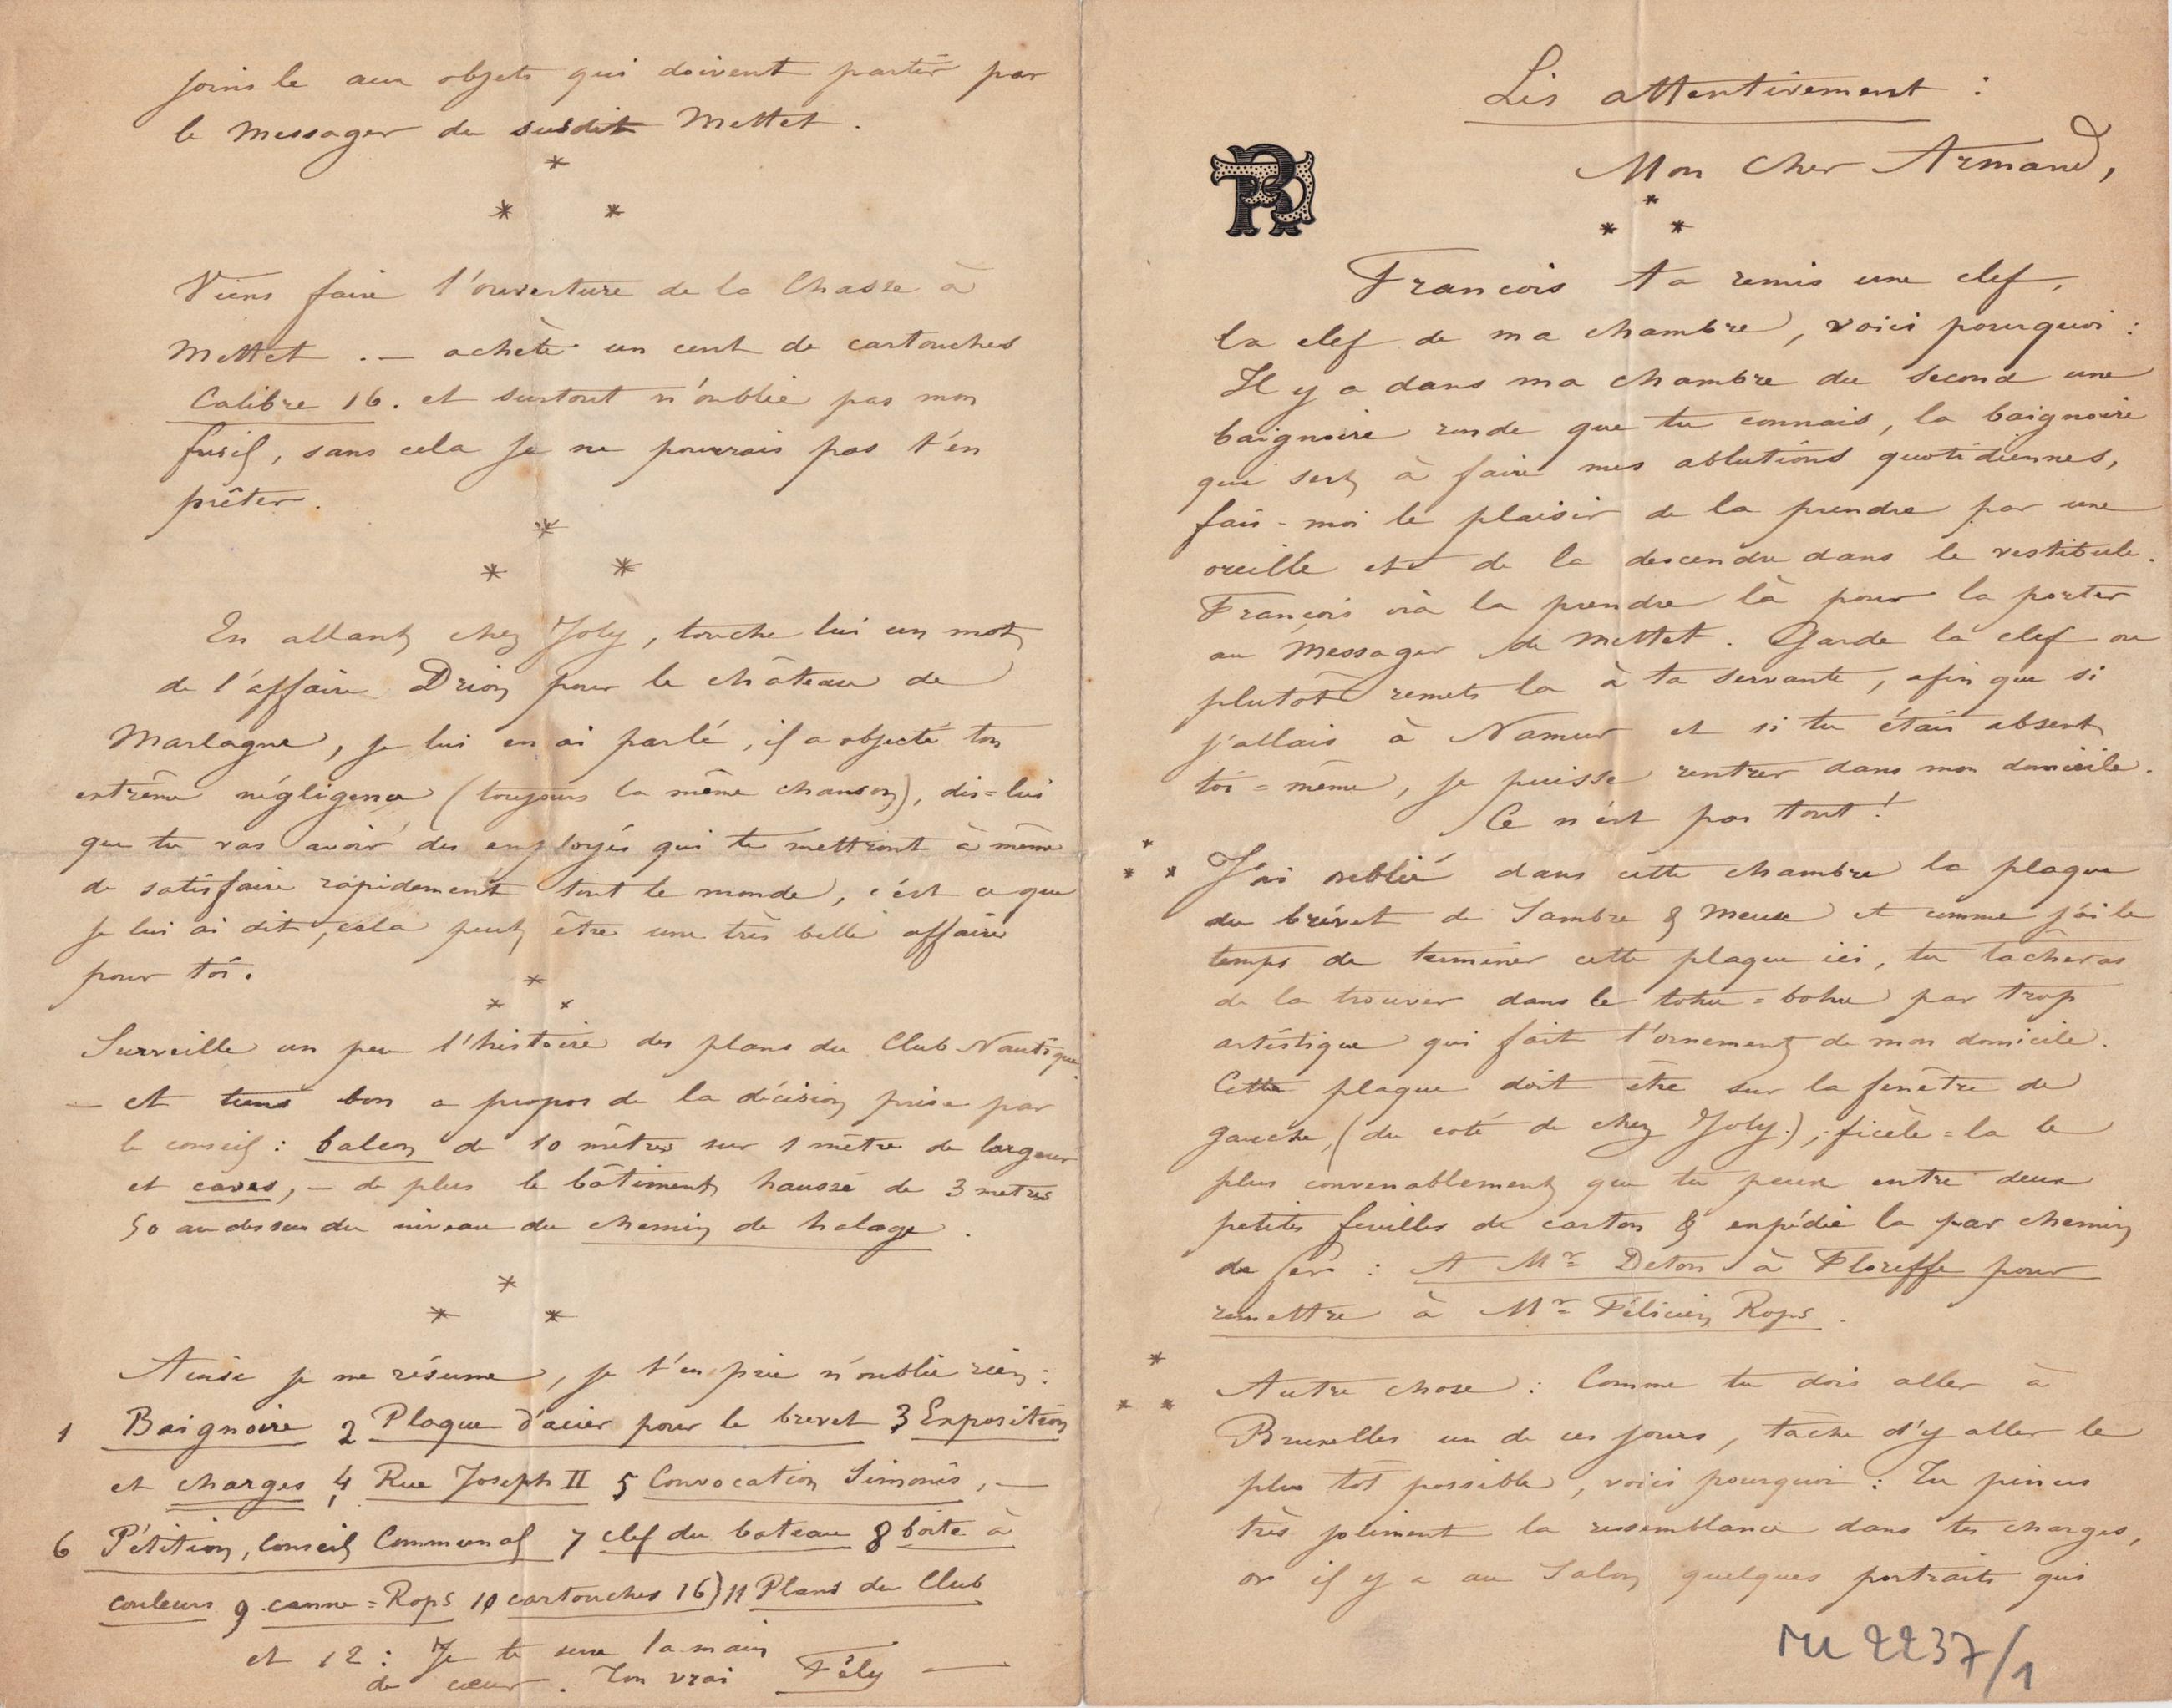 Lis attentivement :
Mon cher Armand,
François t'a remis une clef,
la clef de ma chambre, voici pourquoi :
Il y a dans ma chambre du second une
baignoire ronde que tu connais, la baignoire
qui sert à faire mes ablutions quotidiennes,
fais-moi le plaisir de la prendre par une
oreille et de la descendre dans le vestibule.
François ira la prendre là pour la porter
au Messager de Mettet. Garde la clef ou
plutôt remets la à ta servante, afin que si
j'allais à Namur et si tu étais absent
toi=même, je puisse rentrer dans mon domicile.
Ce n'est pas tout !
J'ai oublié dans cette chambre la plaque
du brévet de Sambre & Meuse et comme j'ai le
temps de terminer cette plaque ici, tu tâcheras
de la trouver dans le tohu=bohu par trop
artistique qui fait l'ornement de mon domicile.
Cette plaque doit être sur la fenêtre de
gauche, (du coté de chez Joly.), ficèle=la le
plus convenablement que tu peux entre deux
petites feuilles de carton & expédie la par chemin
de fer : A Mr Deton à Floreffe pour
remettre à Mr Félicien Rops.
Autre chose : Comme tu dois aller à
Bruxelles un de ces jours, tâche d'y aller le
plus tôt possible, voici pourquoi : Tu pinces
très joliment la ressemblance dans tes charges,
or il y a au Salon quelques portraits qui
MU 2237/1
joins le aux objets qui doivent partir par
le Messager du susdit Mettet.
Viens faire l'ouverture de la Chasse à
Mettet. — achète un cent de cartouches
Calibre 16. et surtout n'oublie pas mon
fusil, sans cela je ne pourrais pas t'en
prêter.
En allant chez Joly, touche lui un mot
de l'affaire Drion pour le château de
Marlagne, je lui en ai parlé, il a objecté ton
extrême négligence (toujours la même chanson), dis=lui
que tu vas avoir des employés qui te mettront à même
de satisfaire rapidement tout le monde, c'est ce que
je lui ai dit, cela peut être une très belle affaire
pour toi.
Surveille un peu l'histoire des plans du Club Nautique
— et tiens bon a propos de la décision prise par
le conseil : balcon de 10 mètres sur 1 mètre de largeur
et caves, — de plus le bâtiment haussé de 3 metres
50 au dessus du niveau du chemin de halage.
Ainsi je me résume, je t'en prie n'oublie rien :
1 Baignoire 2 Plaque d'acier pour le brevet 3 Exposition
et charges 4 Rue Joseph II 5 Convocation Simonis, —
6 Pétition, Conseil Communal 7 clef du bateau 8 boite à
couleurs 9 canne=Rops 10 cartouches 16) 11 Plans du Club
et 12 : Je te serre la main
de cœur. Ton vrai Fély —